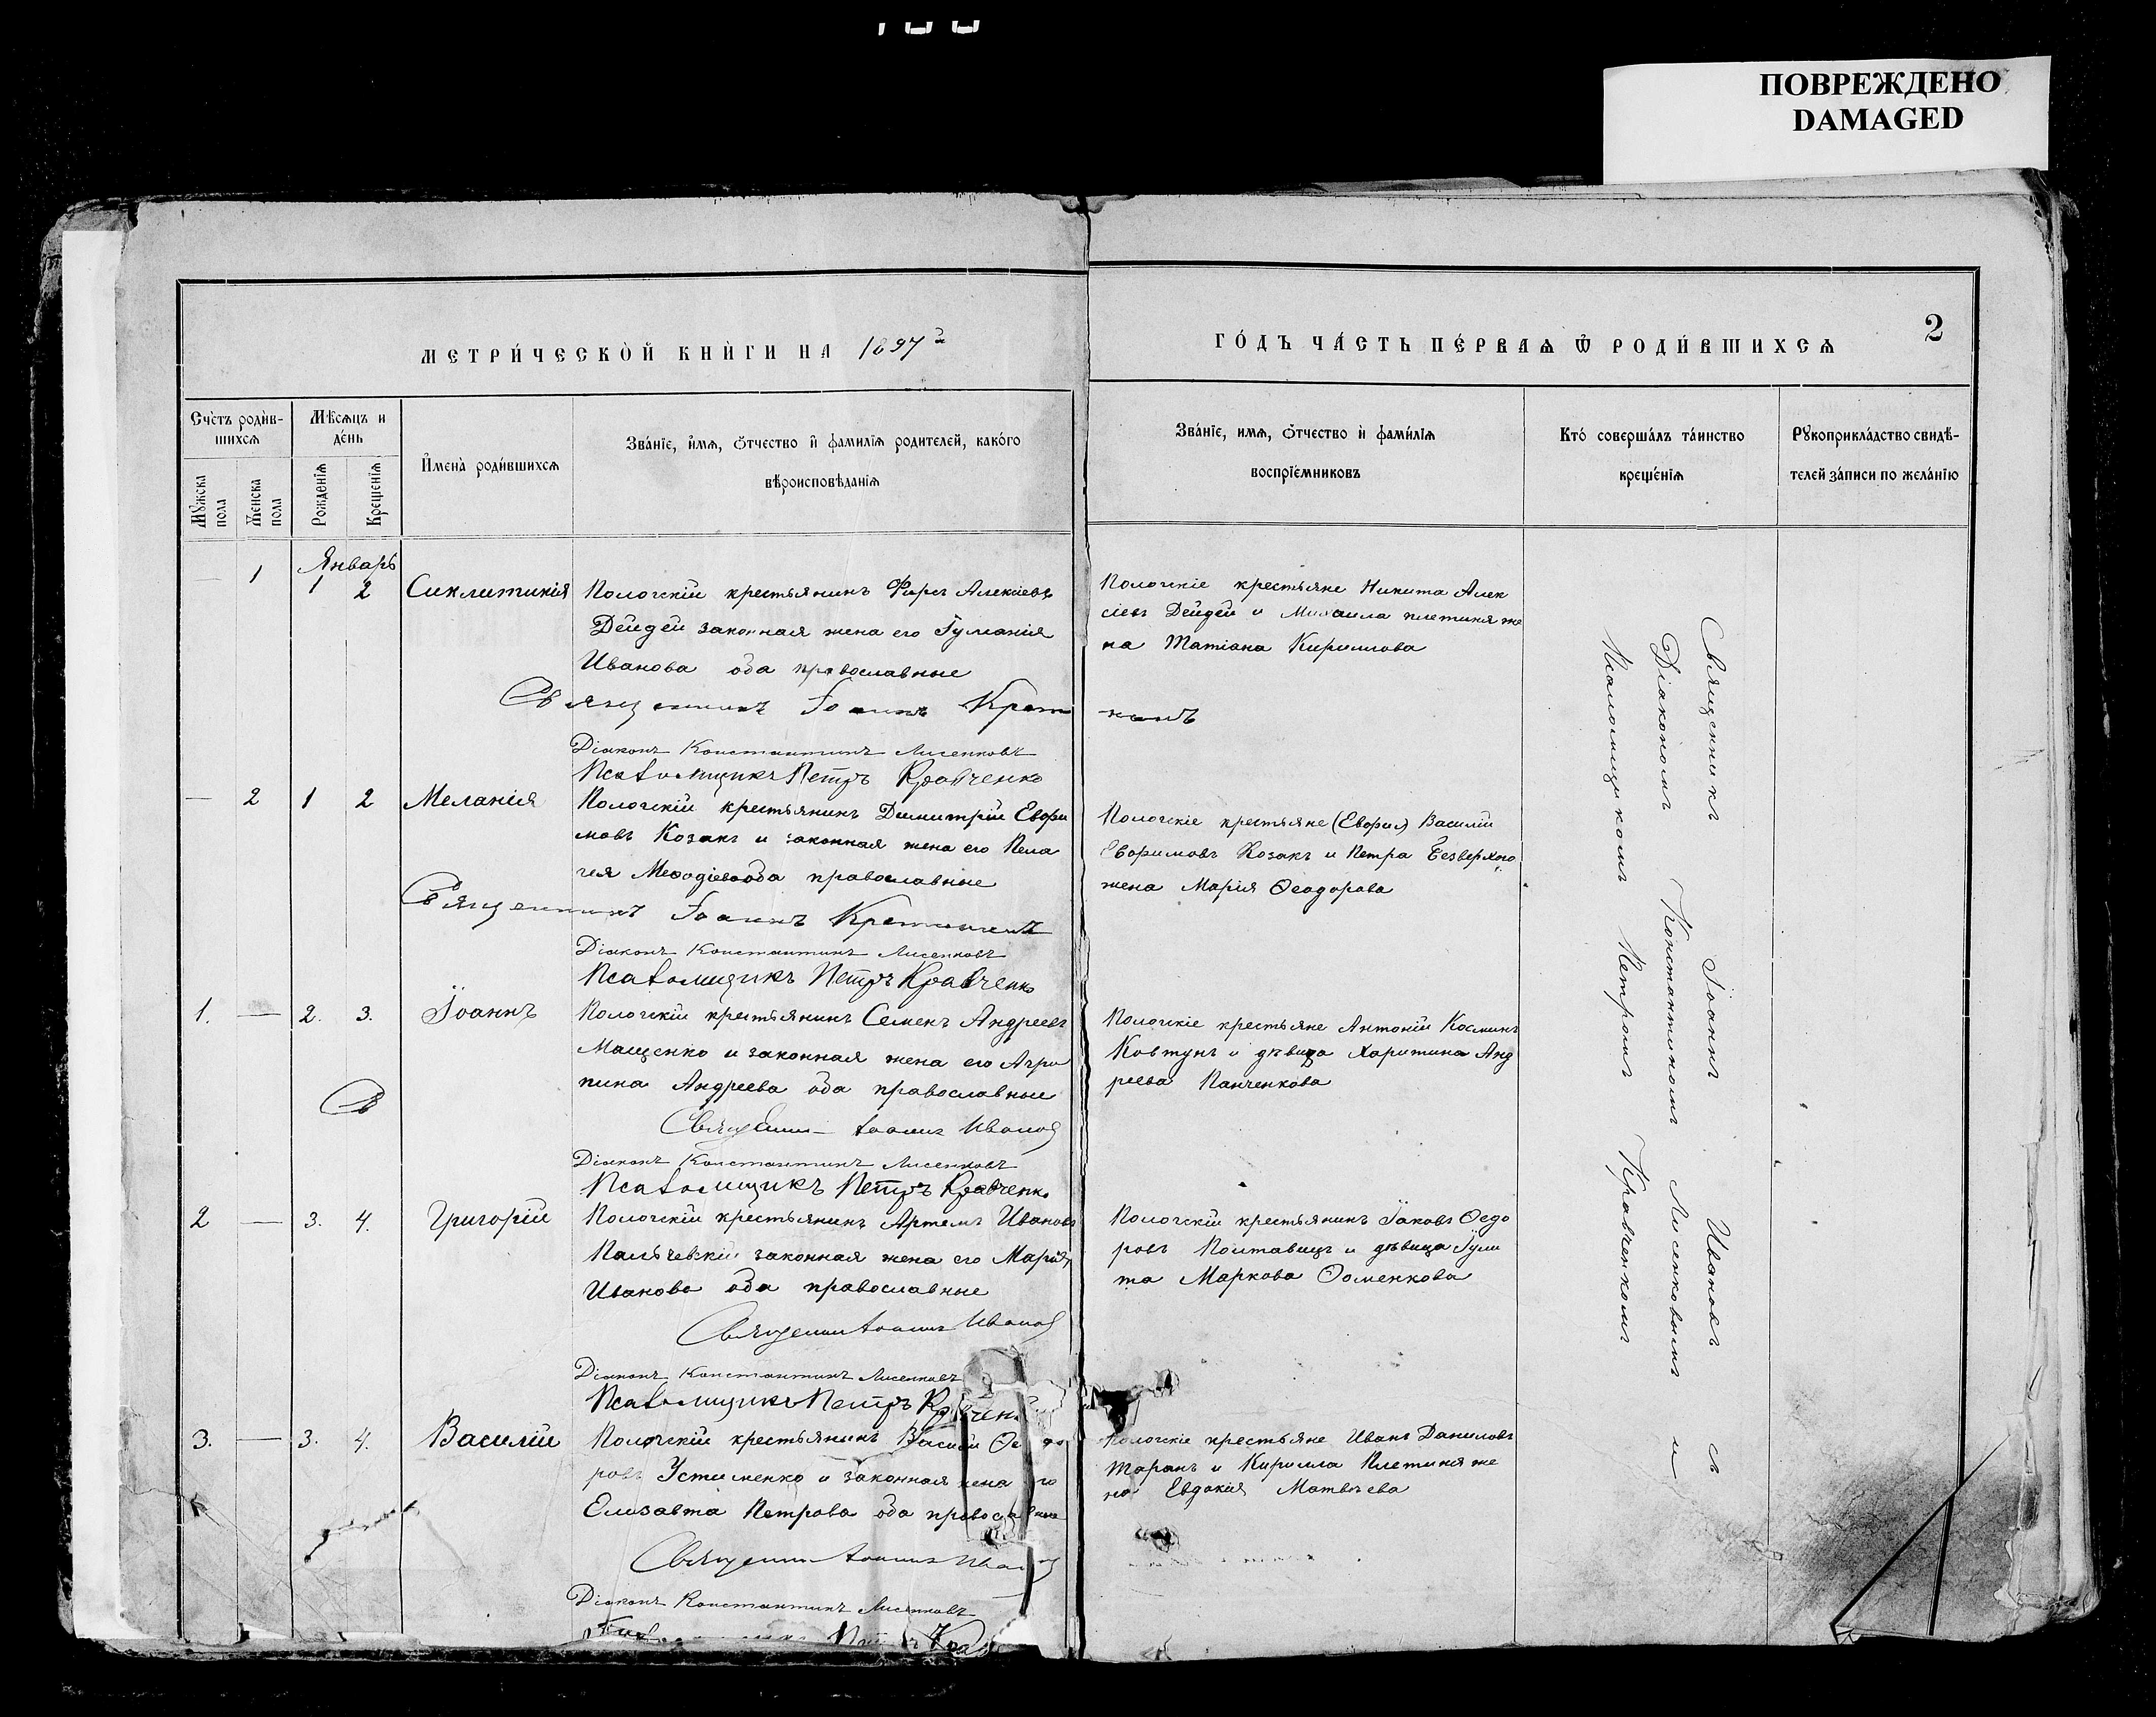 ПОВРЕЖДЕНО
DAMAGED
МЕТРИ́ЧЕСКОЙ КНИ́ГИ НА 1897й
ГО́ДЪ ЧА́СТЬ ПЕ́РВАѦ Ѿ РОДИ́ВШИХСѦ
2
Сче́тъ роди́в-
шихсѧ
Мѣ́сѧцъ и
де́нь
Мꙋжска
пола
Женска
пола
Рожденїѧ
Крещенїѧ
И҆мена̀ роди́вшихсѧ
Зва́нїе, и҆́мѧ, ѻ҆́тчество и҆ фамилїѧ родителей, како́го
вѣроисповѣ́данїѧ
Зва́нїе, имѧ, ѻ҆́тчество и҆ фами́лїѧ
воспрїе́мниковъ
Кто́ соверша́лъ та́инство
креще́нїѧ
Рꙋкоприкла́дство свидѣ́-
телей за́писи по жела́нїю
Январь
— 1 1 2 Синклитикія
Пологскій крестьянинъ Фирсъ Алексіевъ
Дейдей законная жена его Іуліанія
Иванова оба православные
Священникъ Іоаннъ Крат
Діаконъ Константинъ Лисенковъ
Псаломщикъ Петръ Кравченко
Пологскіе крестьяне Никита Алек
сіевъ Дейдей и Михаила плетиня же
на Татіана Кириллова
— 2 1 2 Меланія
Пологскій крестьянинъ Димитрій Евфи
мовъ Козакъ и законная жена его Пела
гея Меѳодіева оба православные
Священникъ Іоаннъ
Діаконъ Константинъ Лисенковъ
Псаломщикъ Петръ Кравченко
Пологскіе крестьяне (Евфим) Василій
Евфимовъ Козакъ и Петра Безверхого
жена Марія Ѳеодорова
1. — 2. 3. Іоаннъ
Пологскій крестьянинъ Семенъ Андреевъ
Мащенко и законная жена его Агри
пина Андреева оба православные
Св
Священникъ Іоаннъ Ивановъ
Діаконъ Константинъ Лисенковъ
Псаломщикъ Петръ Кравченко
Пологскіе крестьяне Антоній Косминъ
Ковтунъ и дѣвица Харитина Анд
реева Панченкова
2 — 3. 4. Григорій
Пологскій крестьянинъ Артемъ Ивановъ
Пальчевскій законная жена его Марія
Иванова оба православные
Священникъ Іоаннъ Ивановъ
Діаконъ Константинъ Лисенковъ
Псаломщикъ Петръ Кравченко
Пологскій крестьянинъ Іаковъ Ѳедо
ровъ Полтавецъ и дѣвица Іули
та Маркова Ѳоменкова
3. — 3. 4. Василій
Пологскій крестьянинъ Василій Ѳеодо
ровъ Устименко и законная жена его
Елизавта Петрова оба православные
Священникъ Іоаннъ Ивановъ
Діаконъ Константинъ Лисенковъ
Пологскіе крестьяне Иванъ Даниловъ
Таранъ и Кирилла Плетиня же
на Евдокія Матвѣева
Священникъ Іоаннъ Ивановъ съ
Діакономъ Константиномъ Лисенковымъ и
Псаломщикомъ Петромъ Кравченкомъ